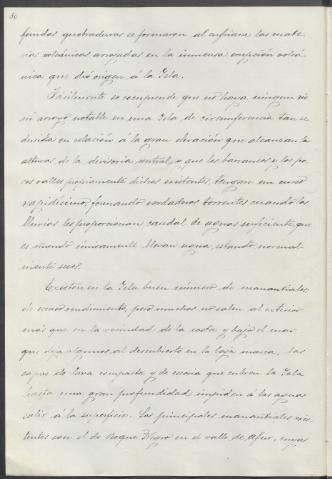 fundas quebraduras se formaron al enfriarse las mate
rias volcánicas arrojadas en la inmensa erupción volcá
nica que dió origen á la Isla.
Fácilmente se comprende que no haya ningun rio
ni arroyo notable en una Isla de circunferencia tan re
ducida en relación á la gran elevación que alcanzan las
alturas de la divisoria central, y que los barrancos y los po
cos valles propiamente dichos existentes, tengan un curso
rapidísimo, formando verdaderos torrentes cuando las
lluvias les proporcionan caudal de aguas suficiente, que
es cuando únicamente llevan agua, estando normal-
mente secos.
Existen en la Isla buen número de manantiales
de escaso rendimiento, pero muchos no salen al exterior
más que en la vecindad de la costa y bajo el mar
que deja algunos al descubierto en la baja marea. Las
capas de lava compacta y de escoria que cubren la Isla
hasta una gran profundidad impiden á las aguas
salir á la superficie. Los principales manantiales exis
tentes son el de Roque Negro en el valle de Afur, cuyas